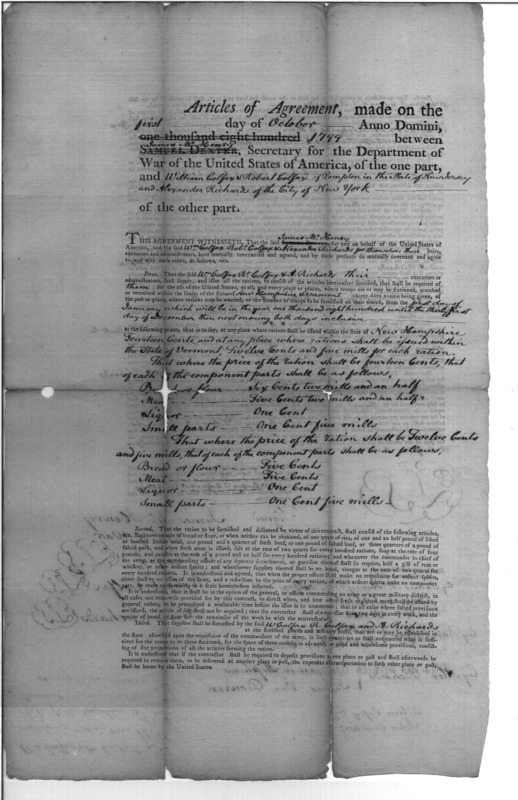 Articles of Agreement, made on the
first day of October Anno Domini,
one thousand eight hundred 1799 between
James McHenry
SAMUEL DEXTER, Secretary for the Department of
War of the United States of America, of the one part,
and William Colfax & Robert Colfax of Pompton in the State of New Jersey
and Alexander Richards of the City of New York
of the other part.
James McHenry
THIS AGREEMENT WITNESSETH, That the said for and on behalf of the United States of
America, and the said Wm Colfax Robt Colfax & Alexander Richards for themselves their heirs,
executors and administrators, have mutually covenanted and agreed, and by these presents do mutually covenant and agree
to and with each other, as follows, viz.
First. That the said Wm Colfax R. Colfax & A. Richards their executors or
administrators, shall supply, and issue all the rations, to consist of the articles hereinafter specified, that shall be required of
them for the use of the United States, at all and every place or places, where troops are or may be stationed, marched
or recruited within the limits of the States of New Hampshire & Vermont thirty days notice being given, of
the post or place, where rations may be wanted, or the number of troops to be furnished on their march, from the first day of
January which will be in the year one thousand eight hundred until the thirty first
day of December then next ensuing both days inclusive
at the following prices, that is to say, at any place where rations shall be issued within the State of New Hampshire
Fourteen Cents and at any place where rations shall be issued within
the State of Vermont, Twelve Cents and five mills for each ration.
That where the price of the ration shall be fourteen Cents, that
of each of the component parts shall be as follows,
Bread or flour — Six Cents two mills and an half
Meat — Five Cents two mills and an half
Liquor — One Cent
Small parts — One Cent five mills
That where the price of the ration shall be Twelve Cents
and five mills, that of each of the component parts shall be as follows,
Bread or flour — Five Cents
Meat — Five Cents
Liquor — One Cent
Small parts — One Cent five mills
Second. That the ration to be furnished and delivered by virtue of this contract, shall consist of the following articles,
viz. Eighteen ounces of bread or flour, or when neither can be obtained, of one quart of rice, or one and an half pound of sifted
or boulted Indian meal, one pound and a quarter of fresh beef, or one pound of salted beef, or three quarters of a pound of
salted pork, and when fresh meat is issued, salt at the rate of two quarts for every hundred rations, soap at the rate of four
pounds, and candles at the rate of a pound and an half for every hundred rations; and whenever the commander in chief of
the army, or the commanding officers of any separate detachment, or garrison thereof shall so require, half a gill of rum or
whiskey, or other ardent spirits; and whensoever supplies thereof shall be on hand, vinegar at the rate of two quarts for
every hundred rations. It is understood and agreed, that when the proper officer shall make no requisition for ardent spirits,
there shall be no issue of the same, and a reduction in the price of every ration, of which ardent spirits make no component
part, be made conformably to a scale hereinbefore inserted.
It is understood, that it shall be in the option of the general, or officer commanding an army or a great military district, in
all cases not otherwise provided for by this contract, to direct when, and how often fresh or salted meat shall be issued by
general orders, to be promulged a reasonable time before the issue is to commence; that in all cases where salted provisions
are issued, the article of salt shall not be required; that the contractor shall always issue flour two days in every week, and the
option of bread or flour for the remainder of the week be with the contractor.
Third. That supplies shall be furnished by the said W Colfax R. Colfax and A. Richards
at the fortified places and military posts, that are or may be established in
the state aforesaid upon the requisition of the commandant of the army, in such quantities as shall not exceed what is suffi-
cient for the troops to be there stationed, for the space of three months in advance, in good and wholesome provisions, consist-
ing of due proportions of all the articles forming the ration.
It is understood that if the contractor shall be required to deposit provisions at one place or post and shall afterwards be
required to remove them, to be delivered at another place or post, the expences of transportation to such other place or post,
shall be borne by the United States.